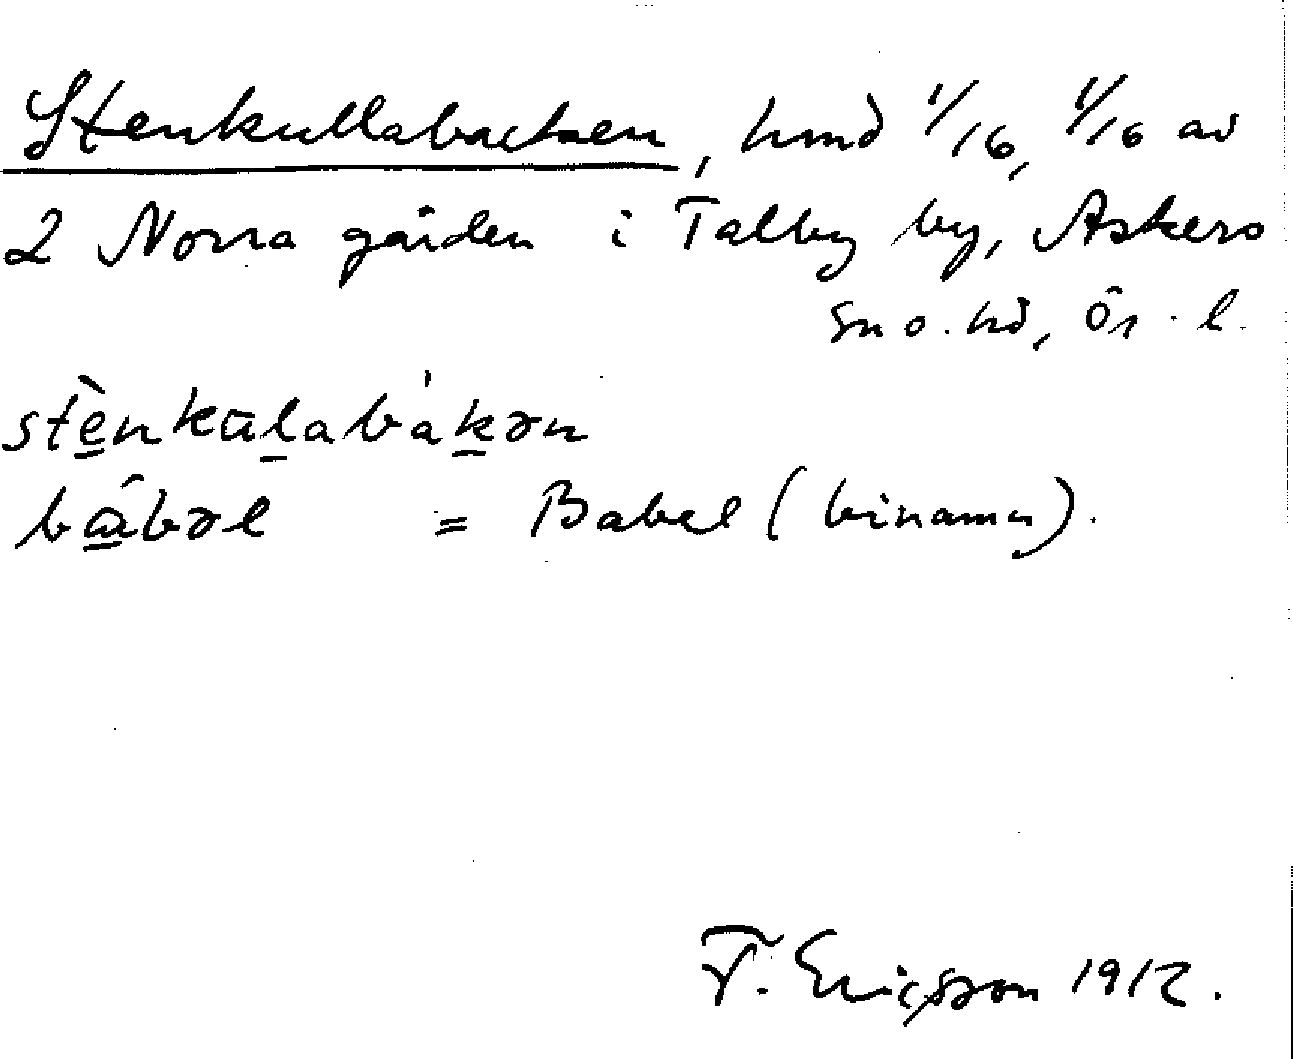 Stenkullabacken, hmd 1/16, 1/16 av
2 Norra gården i Talby by, Askers
sn o. hd, Ör. l.
stè̱nkūḻabáḵən
bâ̱bəl = Babel (binamn).
F. Ericsson 1912.